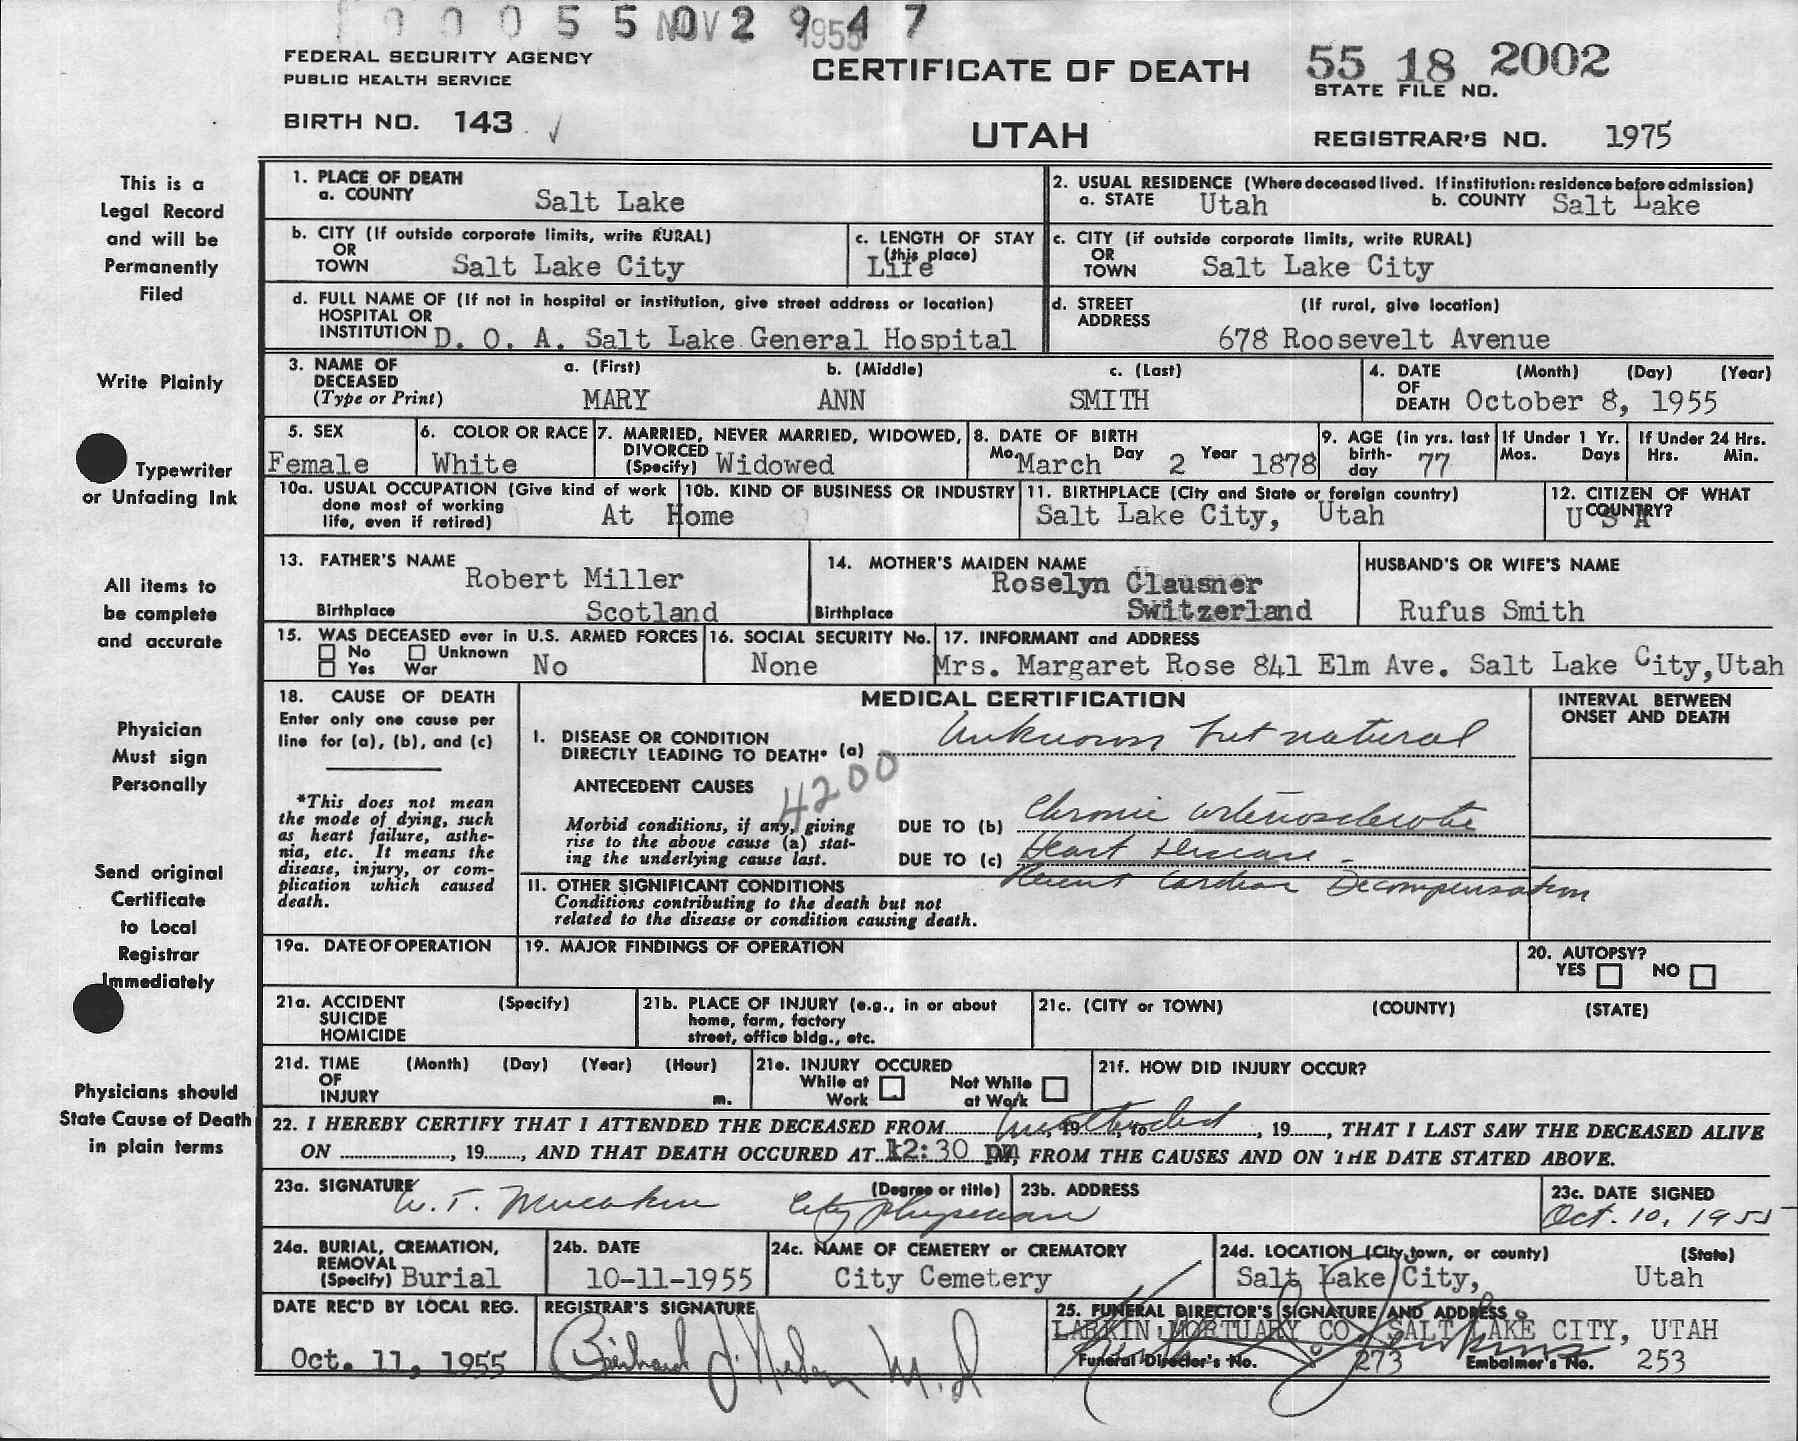 0 0 0 5 5 0 2 9 4 7
NOV 2 1955
FEDERAL SECURITY AGENCY
PUBLIC HEALTH SERVICE
CERTIFICATE OF DEATH
55 18 2002
STATE FILE NO.
BIRTH NO. 143 ✓
UTAH
REGISTRAR'S NO. 1975
This is a
Legal Record
and will be
Permanently
Filed
Write Plainly
Typewriter
or Unfading Ink
All items to
be complete
and accurate
Physician
Must sign
Personally
Send original
Certificate
to Local
Registrar
Immediately
Physicians should
State Cause of Death
in plain terms
1. PLACE OF DEATH
a. COUNTY Salt Lake
2. USUAL RESIDENCE (Where deceased lived. If institution: residence before admission)
a. STATE Utah b. COUNTY Salt Lake
b. CITY (If outside corporate limits, write RURAL)
OR
TOWN Salt Lake City
c. LENGTH OF STAY
(this place)
Life
c. CITY (if outside corporate limits, write RURAL)
OR
TOWN Salt Lake City
d. FULL NAME OF (If not in hospital or institution, give street address or location)
HOSPITAL OR
INSTITUTION D. O. A. Salt Lake General Hospital
d. STREET (If rural, give location)
ADDRESS
678 Roosevelt Avenue
3. NAME OF a. (First) b. (Middle) c. (Last)
DECEASED
(Type or Print) MARY ANN SMITH
4. DATE (Month) (Day) (Year)
OF
DEATH October 8, 1955
5. SEX
Female
6. COLOR OR RACE
White
7. MARRIED, NEVER MARRIED, WIDOWED,
DIVORCED
(Specify) Widowed
8. DATE OF BIRTH
Mo. March Day 2 Year 1878
9. AGE (in yrs. last
birth-
day 77
If Under 1 Yr.
Mos. Days
If Under 24 Hrs.
Hrs. Min.
10a. USUAL OCCUPATION (Give kind of work
done most of working
life, even if retired) At Home
10b. KIND OF BUSINESS OR INDUSTRY
11. BIRTHPLACE (City and State or foreign country)
Salt Lake City, Utah
12. CITIZEN OF WHAT
COUNTRY?
U S A
13. FATHER'S NAME
Robert Miller
Birthplace Scotland
14. MOTHER'S MAIDEN NAME
Roselyn Clausner
Birthplace Switzerland
HUSBAND'S OR WIFE'S NAME
Rufus Smith
15. WAS DECEASED ever in U.S. ARMED FORCES
No Unknown
Yes War No
16. SOCIAL SECURITY No.
None
17. INFORMANT and ADDRESS
Mrs. Margaret Rose 841 Elm Ave. Salt Lake City, Utah
18. CAUSE OF DEATH
Enter only one cause per
line for (a), (b), and (c)
*This does not mean
the mode of dying, such
as heart failure, asthe-
nia, etc. It means the
disease, injury, or com-
plication which caused
death.
MEDICAL CERTIFICATION
INTERVAL BETWEEN
ONSET AND DEATH
I. DISEASE OR CONDITION
DIRECTLY LEADING TO DEATH* (a) Unknown but natural
ANTECEDENT CAUSES
4200
Morbid conditions, if any, giving
rise to the above cause (a) stat-
ing the underlying cause last.
DUE TO (b) Chronic arteriosclerotic
DUE TO (c) Heart disease -
Recent Cardiac Decompensation
II. OTHER SIGNIFICANT CONDITIONS
Conditions contributing to the death but not
related to the disease or condition causing death.
19a. DATE OF OPERATION
19. MAJOR FINDINGS OF OPERATION
20. AUTOPSY?
YES NO
21a. ACCIDENT (Specify)
SUICIDE
HOMICIDE
21b. PLACE OF INJURY (e.g., in or about
home, farm, factory
street, office bldg., etc.
21c. (CITY or TOWN) (COUNTY) (STATE)
21d. TIME (Month) (Day) (Year) (Hour)
OF
INJURY m.
21e. INJURY OCCURED
While at Work
Not While at Work
21f. HOW DID INJURY OCCUR?
22. I HEREBY CERTIFY THAT I ATTENDED THE DECEASED FROM Unattended, 19, to, 19, THAT I LAST SAW THE DECEASED ALIVE
ON, 19, AND THAT DEATH OCCURED AT 12:30 pm, FROM THE CAUSES AND ON THE DATE STATED ABOVE.
23a. SIGNATURE (Degree or title)
W. T. City Physician
23b. ADDRESS
23c. DATE SIGNED
Oct. 10, 1955
24a. BURIAL, CREMATION,
REMOVAL
(Specify) Burial
24b. DATE
10-11-1955
24c. NAME OF CEMETERY or CREMATORY
City Cemetery
24d. LOCATION (City, town, or county) (State)
Salt Lake City, Utah
DATE REC'D BY LOCAL REG.
Oct. 11, 1955
REGISTRAR'S SIGNATURE
M.D
25. FUNERAL DIRECTOR'S SIGNATURE AND ADDRESS
LARKIN MORTUARY CO. SALT LAKE CITY, UTAH
Funeral Director's No. 273 Embalmer's No. 253